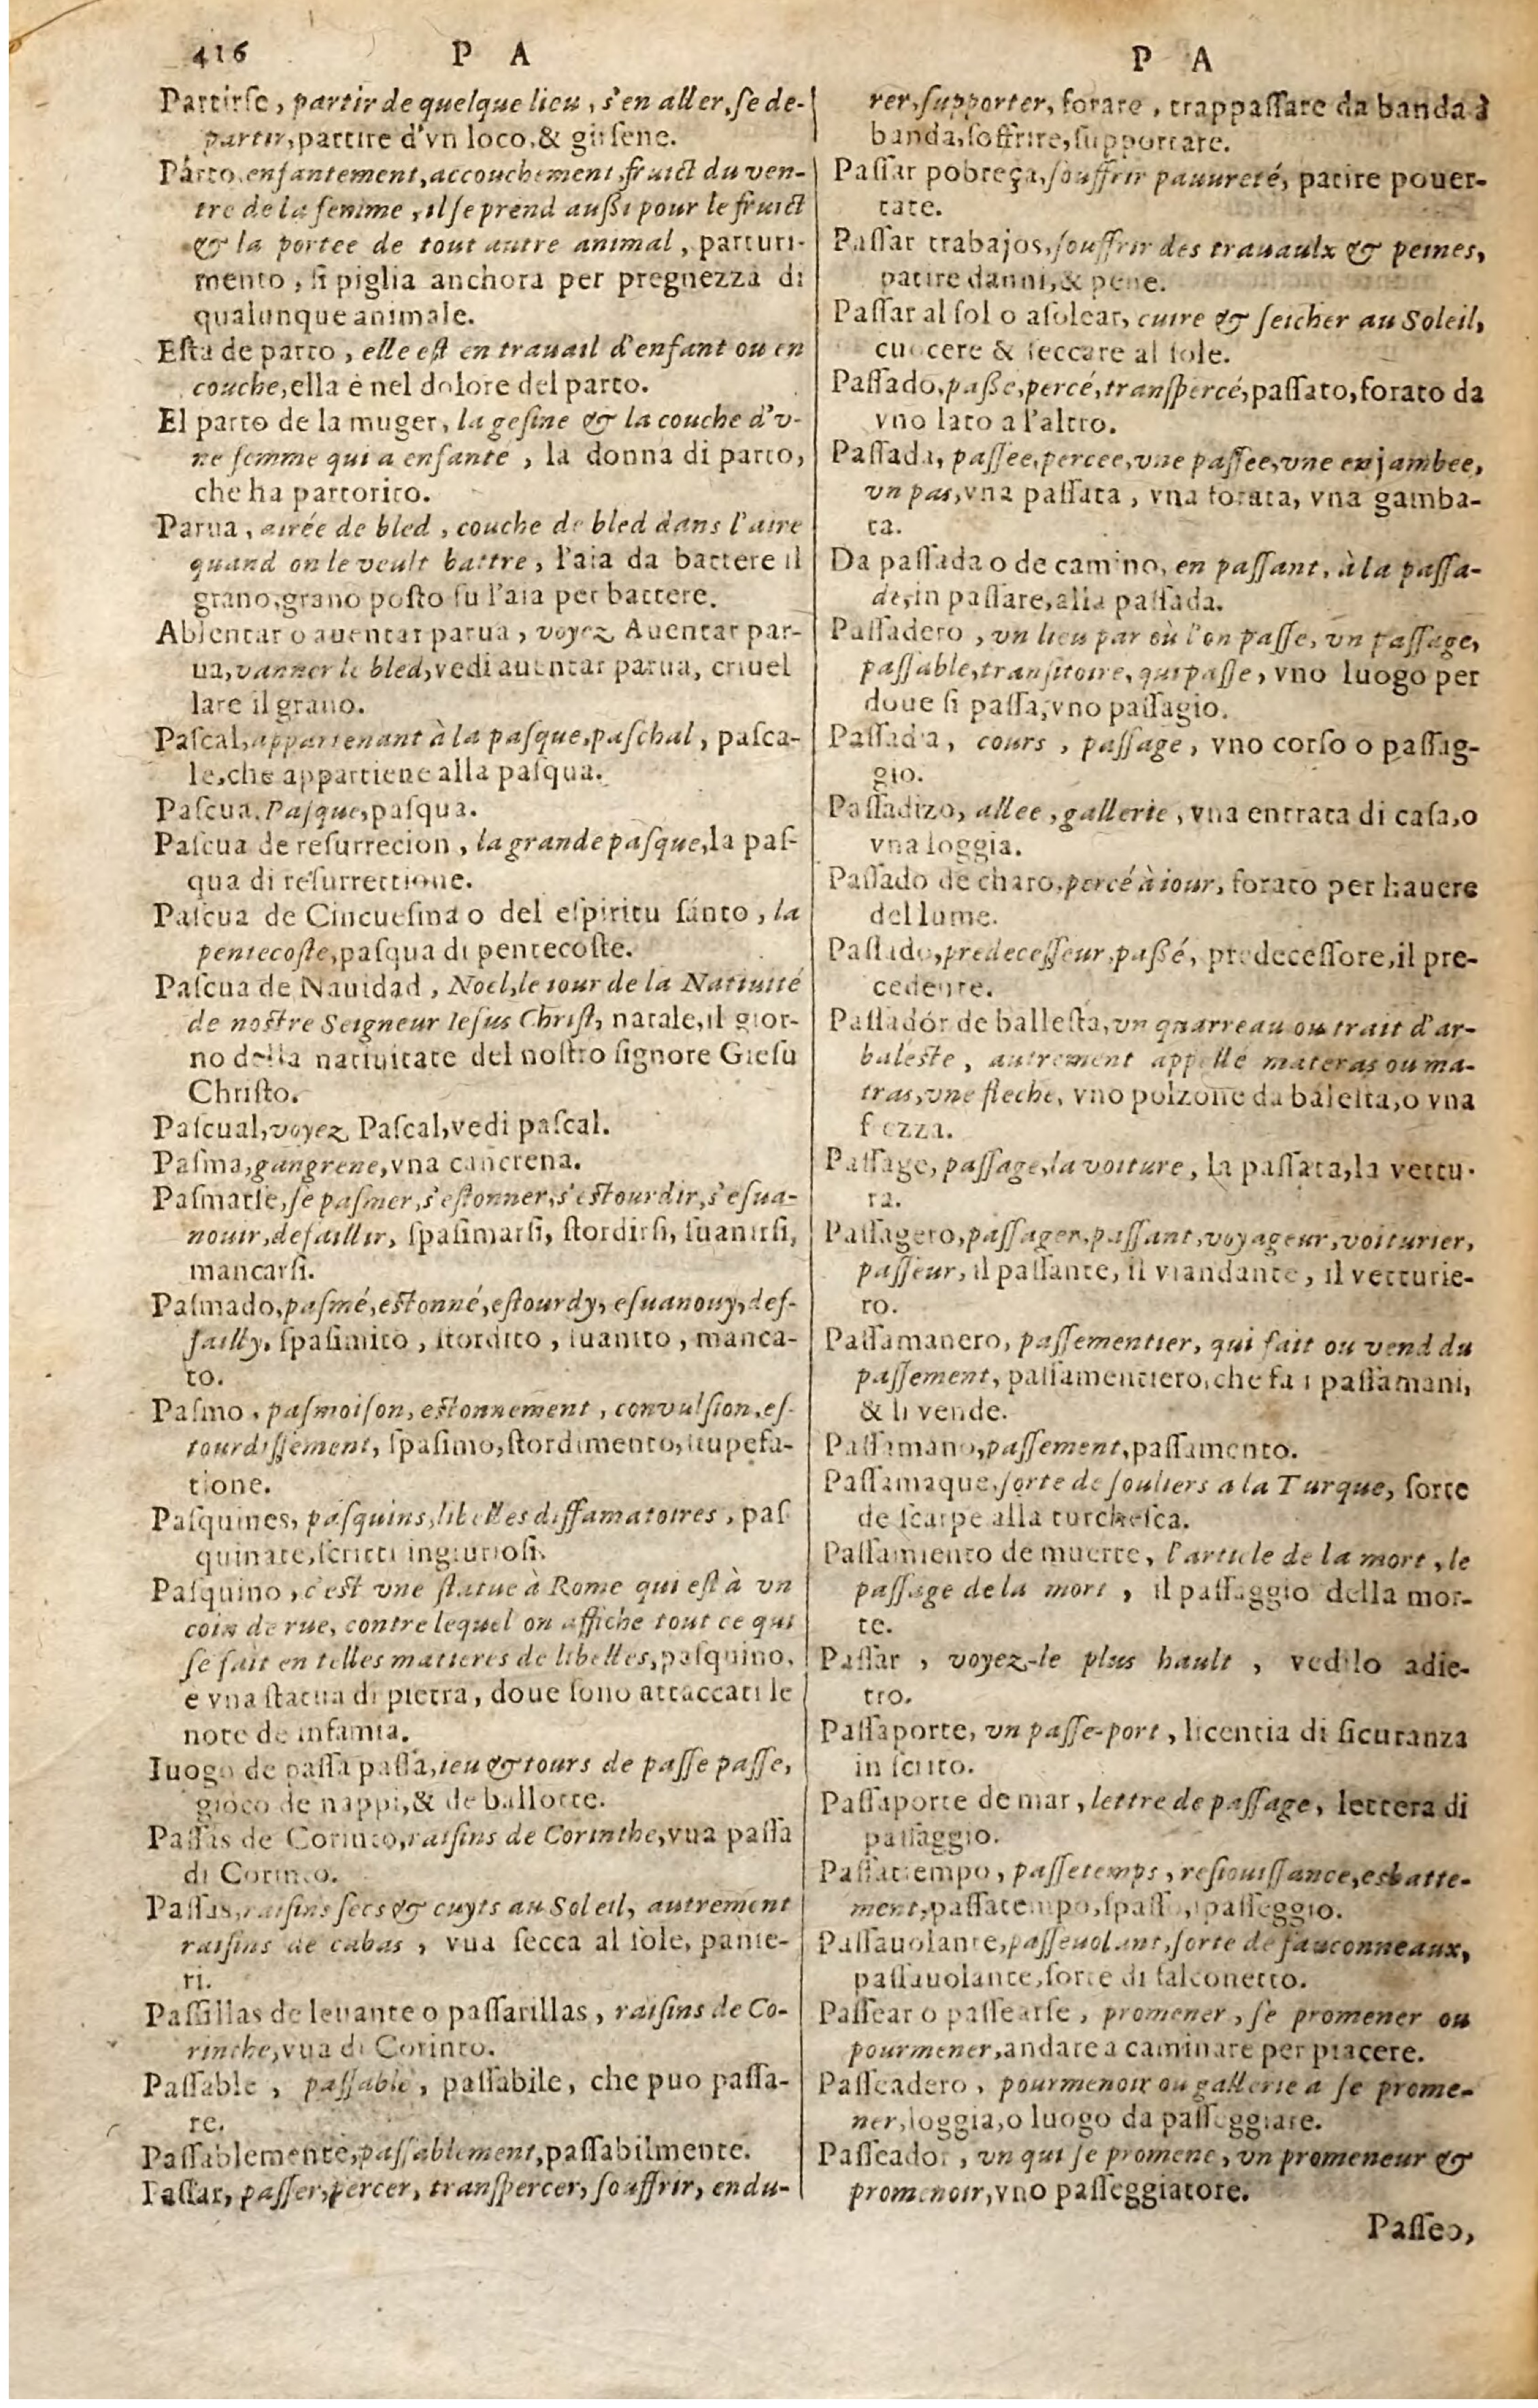 416 P A
Partirſe, partir de quelque lieu, s'en aller, ſe de-
partir, partire d'vn loco, & girſene.
Párto, enfantement, accouchement, fruict du ven-
tre de la femme, il ſe prend auſsi pour le fruict
& la portee de tout autre animal, parturi-
mento, ſi piglia anchora per pregnezza di
qualunque animale.
Eſta de parto, elle eſt en trauail d'enfant ou en
couche, ella é nel dolore del parto.
El parto de la muger, la geſine & la couche d'v-
ne femme qui a enfanté, la donna di parto,
che ha partorito.
Parua, airée de bled, couche de bled dans l'aire
quand on le veult battre, l'aia da battere il
grano, grano poſto ſu l'aia per battere.
Ablentar o auentar parua, voyez Auentar par-
ua, vanner le bled, vedi auentar parua, criuel
lare il grano.
Paſcal, appartenant à la paſque, paſchal, paſca-
le, che appartiene alla paſqua.
Paſcua, Paſque, paſqua.
Paſcua de reſurrecion, la grande paſque, la paſ-
qua di reſurrettione.
Paſcua de Cincueſina o del eſpiritu ſánto, la
pentecoſte, paſqua di pentecoſte.
Paſcua de Nauidad, Noel, le iour de la Natiuité
de noſtre Seigneur Ieſus Chriſt, natale, il gior-
no della natiuitate del noſtro ſignore Gieſu
Chriſto.
Paſcual, voyez Paſcal, vedi paſcal.
Paſma, gangrene, vna cancrena.
Paſmarſe, ſe paſmer, s'eſtonner, s'eſtourdir, s'eſua-
nouir, defaillir, ſpaſimarſi, ſtordirſi, ſuanirſi,
mancarſi.
Paſmado, paſmé, eſtonné, eſtourdy, eſuanouy, deſ-
failly, ſpaſimito, ſtordito, ſuanito, manca-
to.
Paſmo, paſmoiſon, eſtonnement, convulſion, eſ-
tourdiſſement, ſpaſimo, ſtordimento, ſtupefa-
tione.
Paſquines, paſquins, libelles diffamatoires, paſ
quinate, ſcritti ingiurioſi.
Paſquino, c'eſt vne ſtatue à Rome qui eſt à vn
coin de rue, contre lequel on affiche tout ce qui
ſe fait en telles matieres de libelles, paſquino,
e vna ſtatua di pietra, doue ſono attaccati le
note de infamia.
Iuogo de paſſa paſſa, ieu & tours de paſſe paſſe,
gioco de nappi, & de ballotte.
Paſſas de Corinto, raiſins de Corinthe, vua paſſa
di Corinto.
Paſſas, raiſins ſecs & cuyts au Soleil, autrement
raiſins de cabas, vua ſecca al ſole, panie-
ri.
Paſſillas de leuante o paſſarillas, raiſins de Co-
rinthe, vua di Corinto.
Paſſable, paſſable, paſſabile, che puo paſſa-
re.
Paſſablemente, paſſablement, paſſabilmente.
Paſſar, paſſer, percer, tranſpercer, ſouffrir, endu-
P A
rer, ſupporter, forare, trappaſſare da banda à
banda, ſoffrire, ſupportare.
Paſſar pobreça, ſouffrir pauureté, patire pouer-
tate.
Paſſar trabajos, ſouffrir des trauaulx & peines,
patire danni, & pene.
Paſſar al ſol o aſolear, cuire & ſeicher au Soleil,
cuocere & ſeccare al ſole.
Paſſado, paßé, percé, tranſpercé, paſſato, forato da
vno lato a l'altro.
Paſſada, paſſee, percee, vne paſſee, vne enjambee,
vn pas, vna paſſata, vna forata, vna gamba-
ta.
Da paſſada o de camino, en paſſant, à la paſſa-
de, in paſſare, alla paſſada.
Paſſadero, vn lieu par où l'on paſſe, vn paſſage,
paſſable, tranſitoire, qui paſſe, vno luogo per
doue ſi paſſa, vno paſſagio.
Paſſadia, cours, paſſage, vno corſo o paſſag-
gio.
Paſſadizo, allee, gallerie, vna entrata di caſa, o
vna loggia.
Paſſado de charo, percé à iour, forato per hauere
del lume.
Paſſado, predeceſſeur, paßé, predeceſſore, il pre-
cedente.
Paſſadór de balleſta, vn quarreau ou trait d'ar-
baleſte, autrement appellé materas ou ma-
tras, vne fleche, vno polzone da baleſta, o vna
frezza.
Paſſage, paſſage, la voiture, la paſſata, la vettu-
ra.
Paſſagero, paſſager, paſſant, voyageur, voiturier,
paſſeur, il paſſante, il viandante, il vetturie-
ro.
Paſſamanero, paſſementier, qui fait ou vend du
paſſement, paſſamentiero, che fa i paſſamani,
& li vende.
Paſſamano, paſſement, paſſamento.
Paſſamaque, ſorte de ſouliers a la Turque, ſorte
de ſcarpe alla turcheſca.
Paſſamiento de muerte, l'article de la mort, le
paſſage de la mort, il paſſaggio della mor-
te.
Paſſar, voyez-le plus hault, vedilo adie-
tro.
Paſſaporte, vn paſſe-port, licentia di ſicuranza
in ſcrito.
Paſſaporte de mar, lettre de paſſage, lettera di
paſſaggio.
Paſſatiempo, paſſetemps, reſiouiſſance, esbatte-
ment, paſſatempo, ſpaſſo, paſſeggio.
Paſſauolante, paſſeuolant, ſorte de fauconneaux,
paſſauolante, ſorte di falconetto.
Paſſear o paſſearſe, promener, ſe promener ou
pourmener, andare a caminare per piacere.
Paſſeadero, pourmenoir ou gallerie a ſe prome-
ner, loggia, o luogo da paſſeggiare.
Paſſeador, vn qui ſe promene, vn promeneur &
promenoir, vno paſſeggiatore.
Paſſeo,